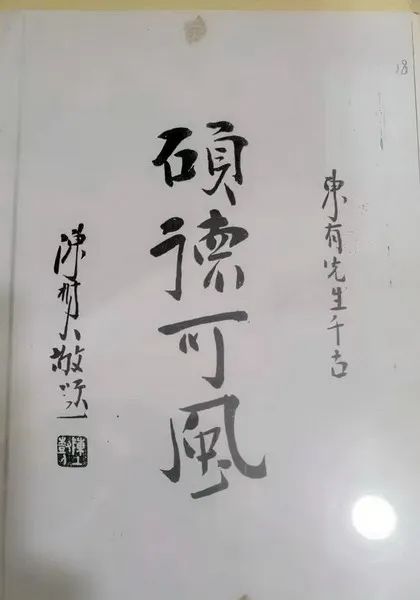 18
東有先生千古
碩德可風
陳樹人敬題